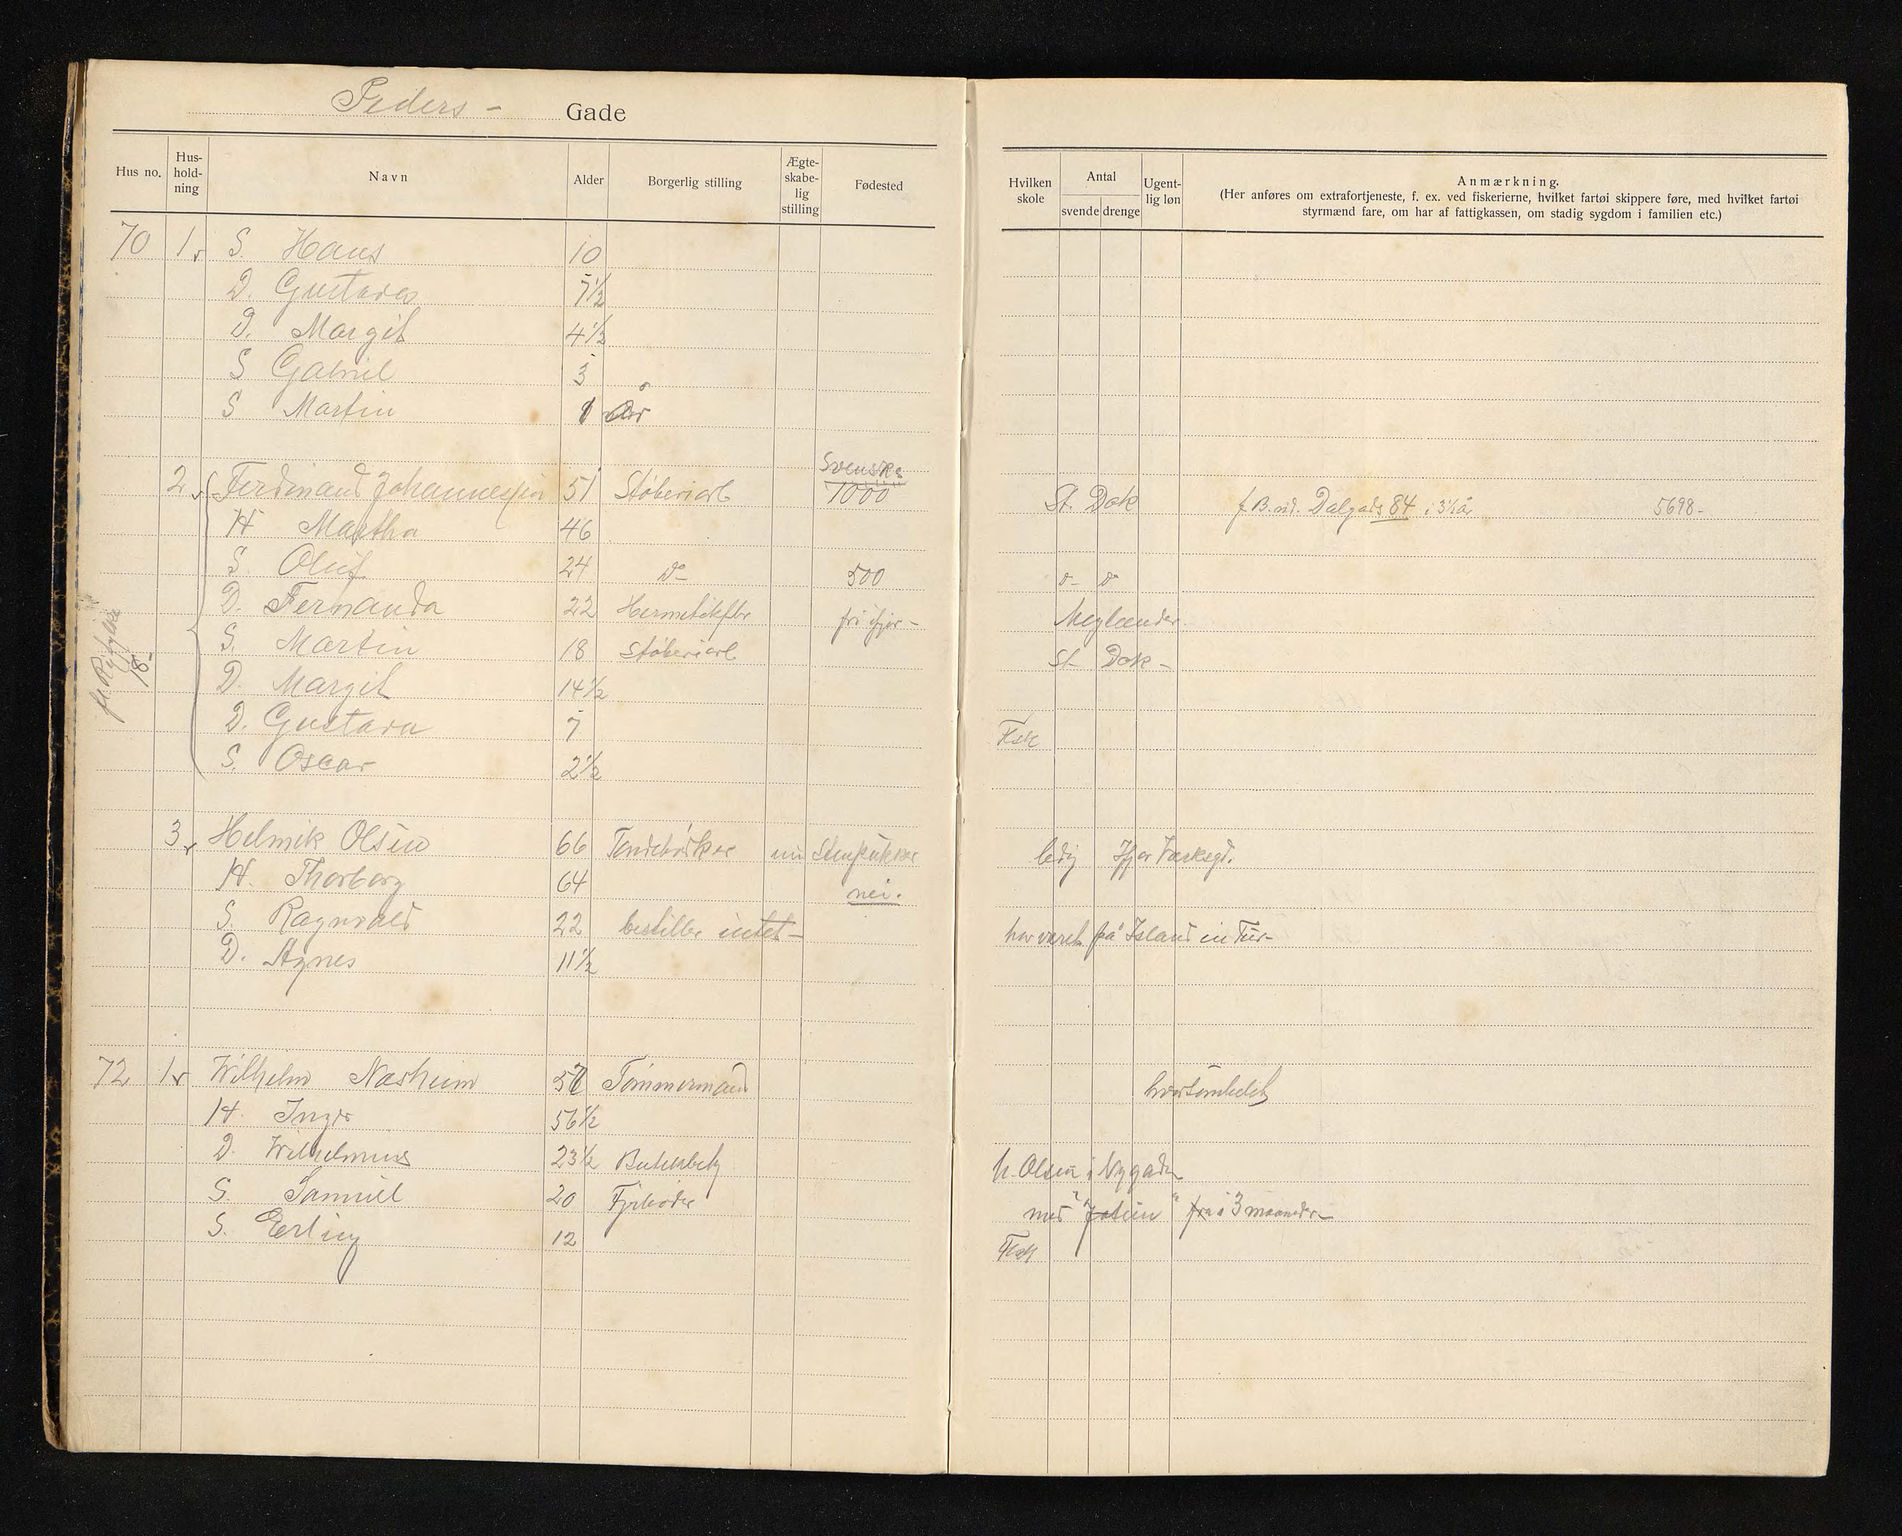 Peders- Gade
Hus no. Hus-hold-ning Navn Alder Borgerlig stilling Ægte-skabe-lig stilling Fødested
Hvilken skole Antal svende drenge Ugent-lig løn Anmærkning.
(Her anføres om extrafortjeneste, f. ex. ved fiskerierne, hvilket fartøi skippere føre, med hvilket fartøi
styrmænd fare, om har af fattigkassen, om stadig sygdom i familien etc.)
70 1 S. Hans 10
D. Gustava 7½
D. Margit 4½
S Gabriel 3
S Martin 1 År
Svenske
2 Ferdinand Johannessen 51 Støberiarb 1000 St. Dok Dalgads 84 i 3½ år 5698-
H Martha 46
S. Oluf 24 do 500 do do
D. Fernanda 22 Hermetikfbr fri ifjor- Meglænder
S. Martin 18 Støberiarb St Dok-
D. Margit 14½
D. Gustava 7 Fsk
S. Oscar 2½
18-
3 Helmik Olsen 66 Tøndebødker nu ledig Ifjor
H. Thorborg 64 nei.
S. Ragnvald 22 bestiller intet- har været på Island en Tur-
D. Agnes 11½
72 1 Wilhelm Nasheim 57 Tømmermand
H. Inger 56½
D. Wilhelmine 23½ Butikbetj h. Olsen i Nygaden
S. Samuel 20 Fyrbøder med "Jotun" fra i 3 maaneder-
S. Erling 12 Fsk